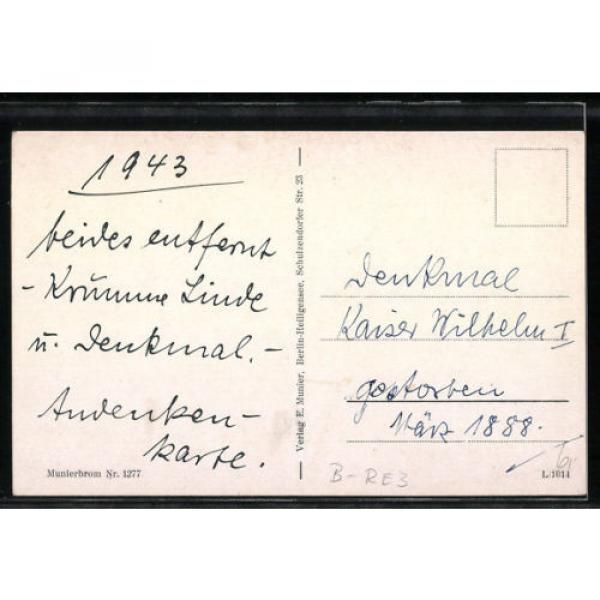 1943
beides entfernt
- Krumme Linde
u. Denkmal. -
Andenken-
karte.
Munierbrom Nr. 1277
Verlag E. Munier, Berlin-Heiligensee, Schulzendorfer Str. 23
Denkmal
Kaiser Wilhelm I
gestorben
März 1888.
B-RE3
L/1014